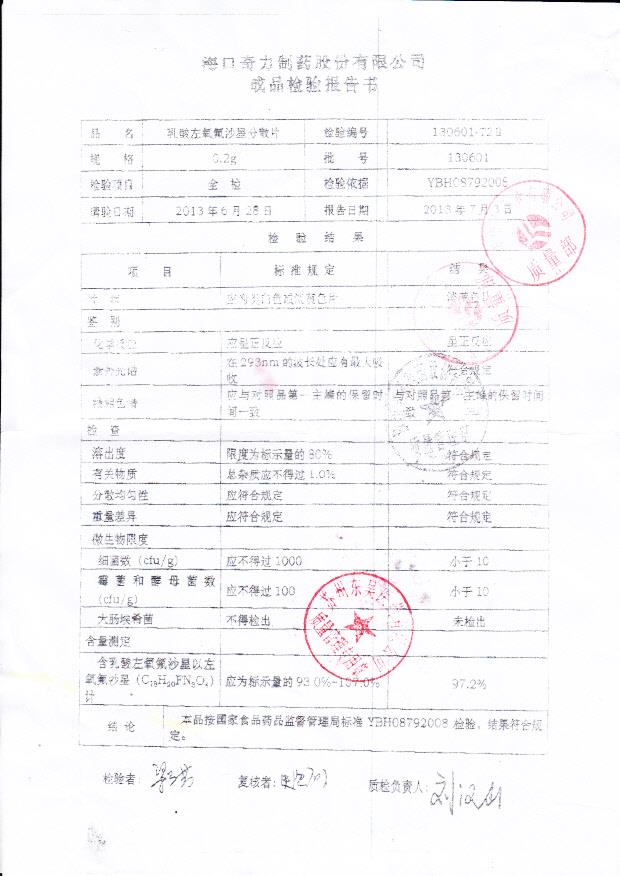 海口奇力制药股份有限公司
成品检验报告书
品 名 乳酸左氧氟沙星分散片 检验编号
规 格 0.2g 批 号 130601
检验项目 全 检 检验依据 YBH08792008
请验日期 2013年6月28日 报告日期 2013年7月3日
检 验 结 果
项 目 标准规定 结 果
鉴 别
化学反应 应呈正反应 呈正反应
在293nm的波长处应有最大吸
收 符合规定
应与对照品第一主峰的保留时 与对照品第一主峰的保留时间
间一致
检 查
溶出度 限度为标示量的80% 符合规定
有关物质 总杂质应不得过1.0% 符合规定
分散均匀性 应符合规定 符合规定
重量差异 应符合规定 符合规定
微生物限度
细菌数(cfu/g) 应不得过1000 小于10
霉菌和酵母菌数
(cfu/g) 应不得过100 小于10
大肠埃希菌 不得检出 未检出
含量测定
含乳酸左氧氟沙星以左
氧氟沙星(C₁₈H₂₀FN₃O₄) 应为标示量的93.0%-107.0% 97.2%
计
结 论 本品按国家食品药品监督管理局标准YBH08792008检验,结果符合规
定。
检验者: 复核者: 质检负责人:
质量部